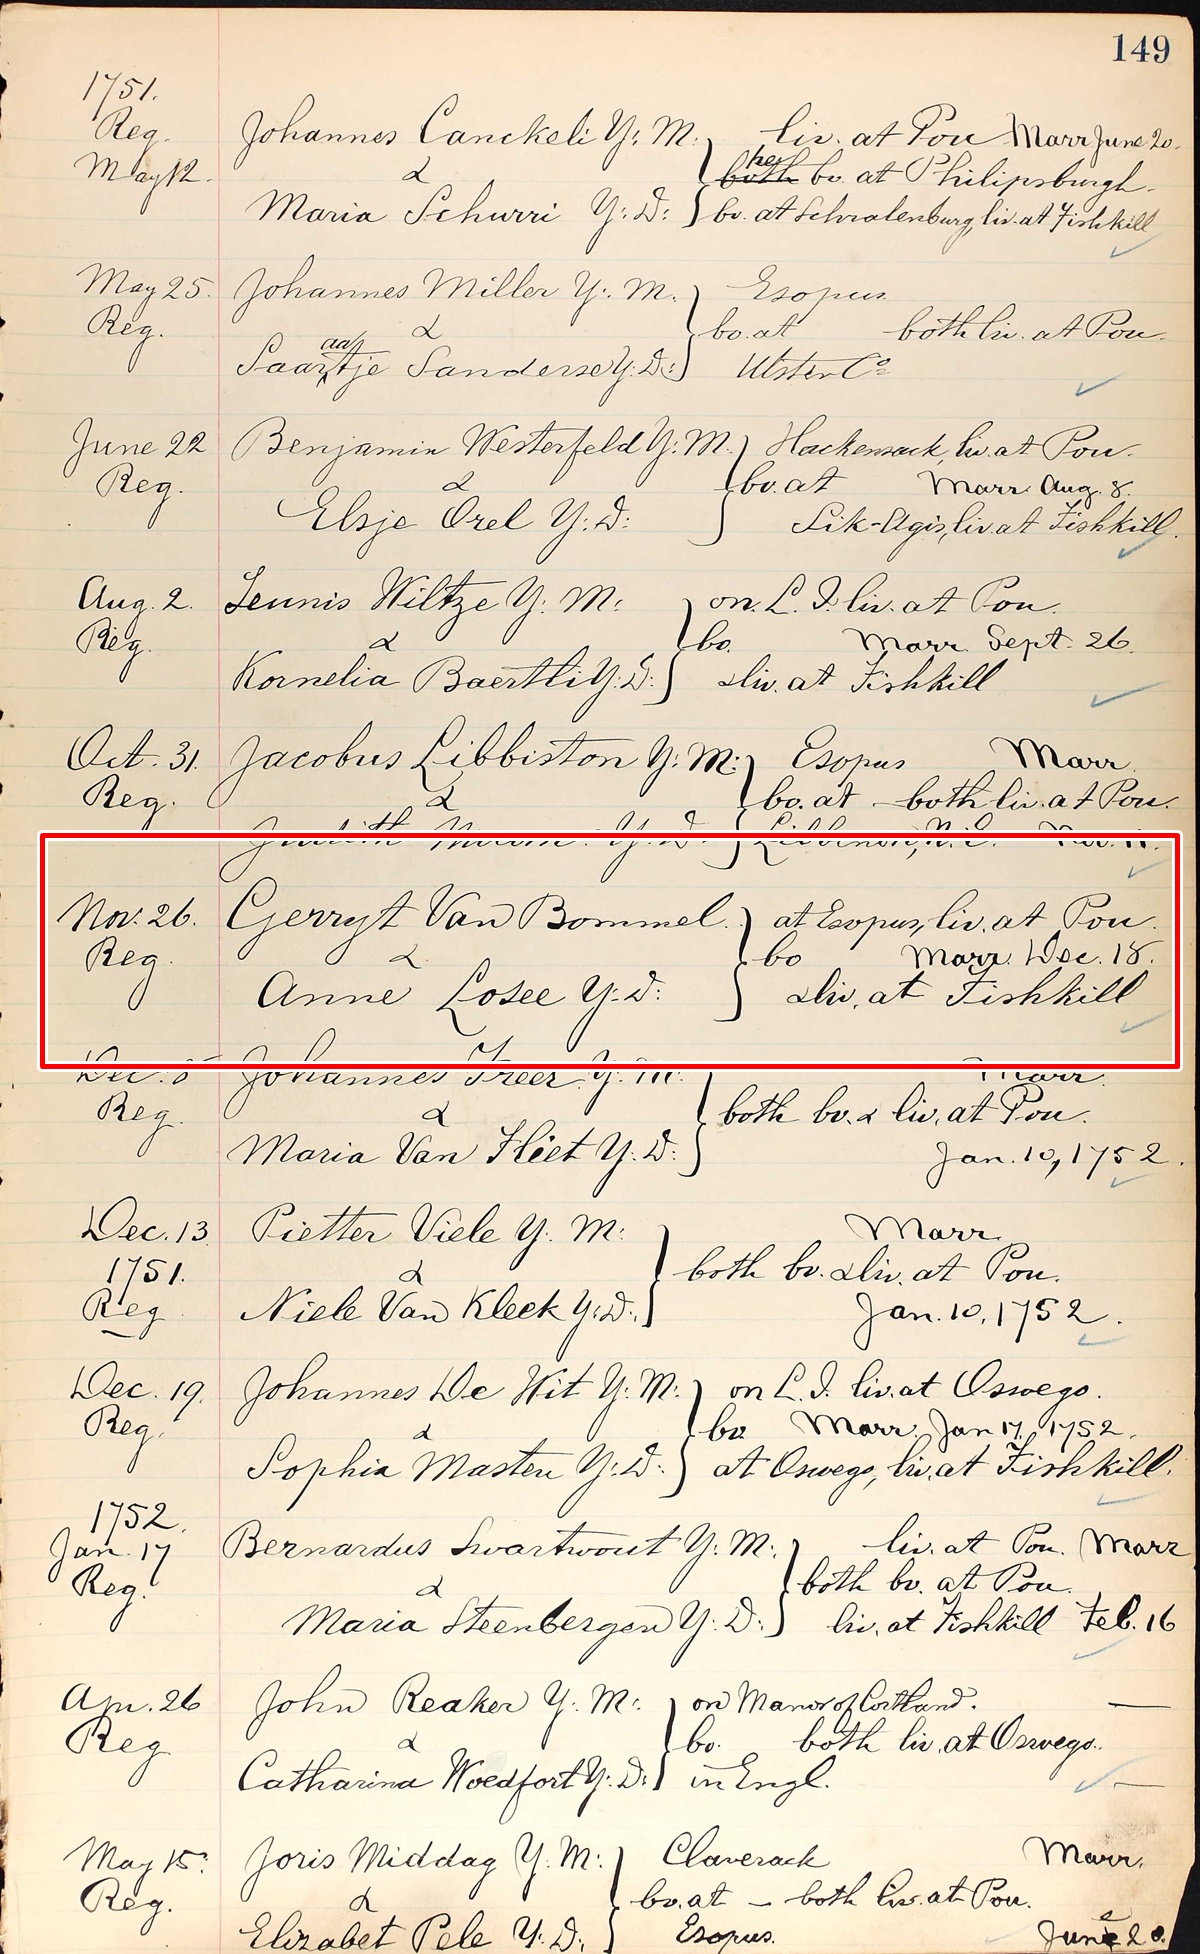 149
1751.
Reg. Johannes Canckeli Y: M. liv. at Pou Marr June 20.
May 12. & her both bo. at Philipsburgh.
Maria Schurri Y: D: bo. at Schralenburg, liv. at Fishkill
May 25. Johannes Miller Y: M. Esopus
Reg. & bo. at both liv. at Pou.
aa
Saartje Sanderse Y: D: Ulster Co
June 22 Benjamin Westerfeld Y: M. Hackensack, liv. at Pou.
Reg. & bo. at Marr. Aug. 8.
Elsje Orel Y: D: Sik-Agis, liv. at Fishkill.
Aug. 2. Teunis Wiltze Y: M: on L. I. liv. at Pou.
Reg. & bo. Marr. Sept. 26.
Kornelia Baertli Y: D: & liv. at Fishkill
Oct. 31. Jacobus Libbiston Y: M: Esopus Marr.
Reg. & bo. at – both liv. at Pou.
Judith Y: D:
Nov. 26. Gerryt Van Bommel. at Esopus, liv. at Pou.
Reg. & bo Marr. Dec. 18.
Anne Losee Y: D: & liv. at Fishkill
Dec. 8 Johannes Freer Y: M: Marr.
Reg. & both bo. & liv. at Pou.
Maria Van Fleet Y: D: Jan. 10, 1752.
Dec. 13 Pietter Viele Y: M: Marr.
1751. & both bo. & liv. at Pou.
Reg Niele Van Kleek Y: D: Jan. 10, 1752.
Dec. 19. Johannes De Wit Y: M: on L. I. liv. at Oswego.
Reg. & bo. Marr. Jan 17, 1752.
Sophia Masten Y: D: at Oswego, liv. at Fishkill.
1752.
Jan. 17 Bernardus Swartwout Y: M: liv. at Pou. Marr
Reg. & both bo. at Pou.
Maria Steenbergen Y: D: liv. at Fishkill Feb. 16
Apr. 26 John Reaker Y: M: on Manor of Cortland.
Reg. & bo. both liv. at Oswego.
Catharina Woedfort Y: D: in Engl.
May 15: Joris Middag Y: M: Claverack Marr.
Reg. & bo. at – both liv. at Pou.
Elizabet Pele Y: D: Esopus. June 20.